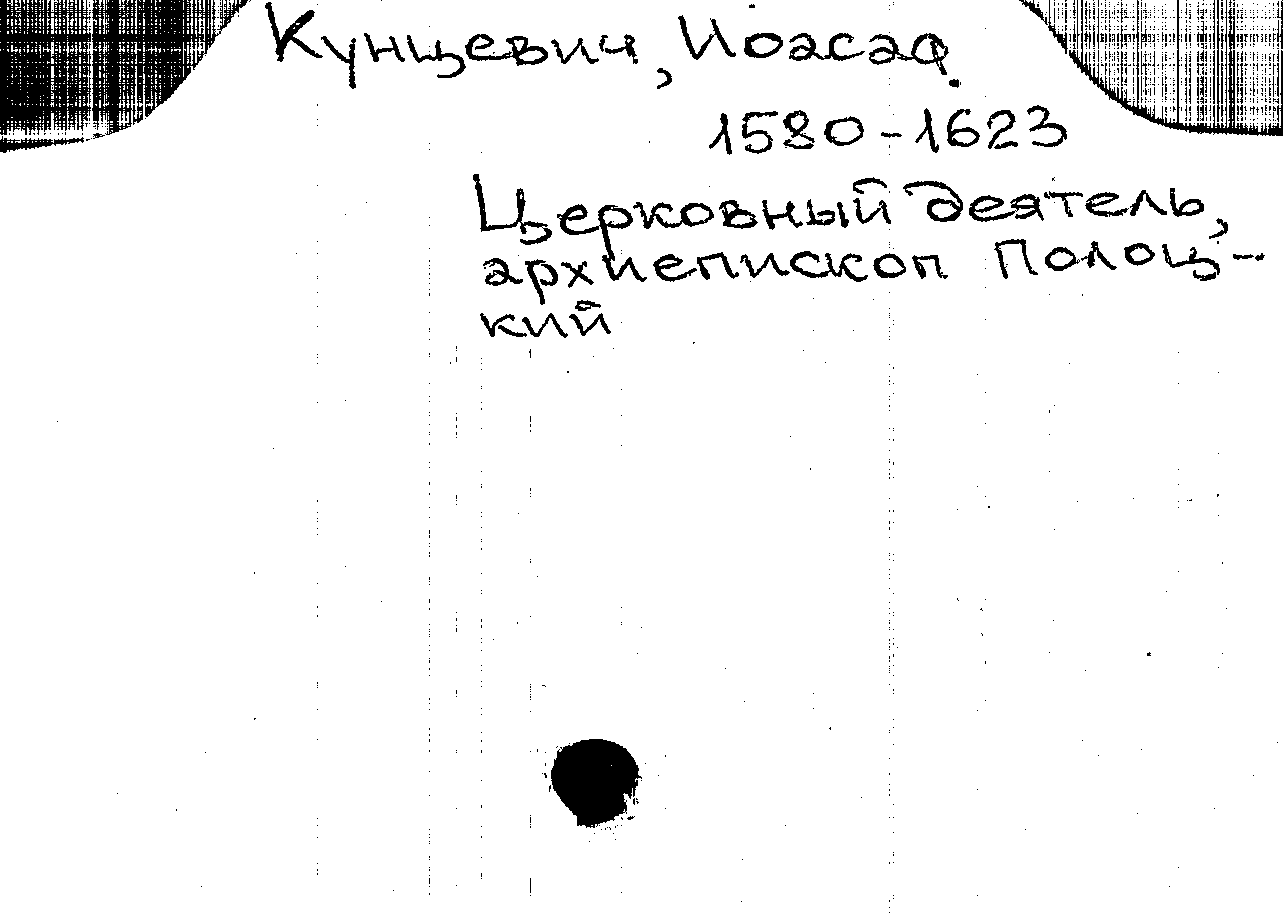 Кунцевич, Иоасаф.
1580-1623
Церковный деятель,
архиепископ Полоц-
кий